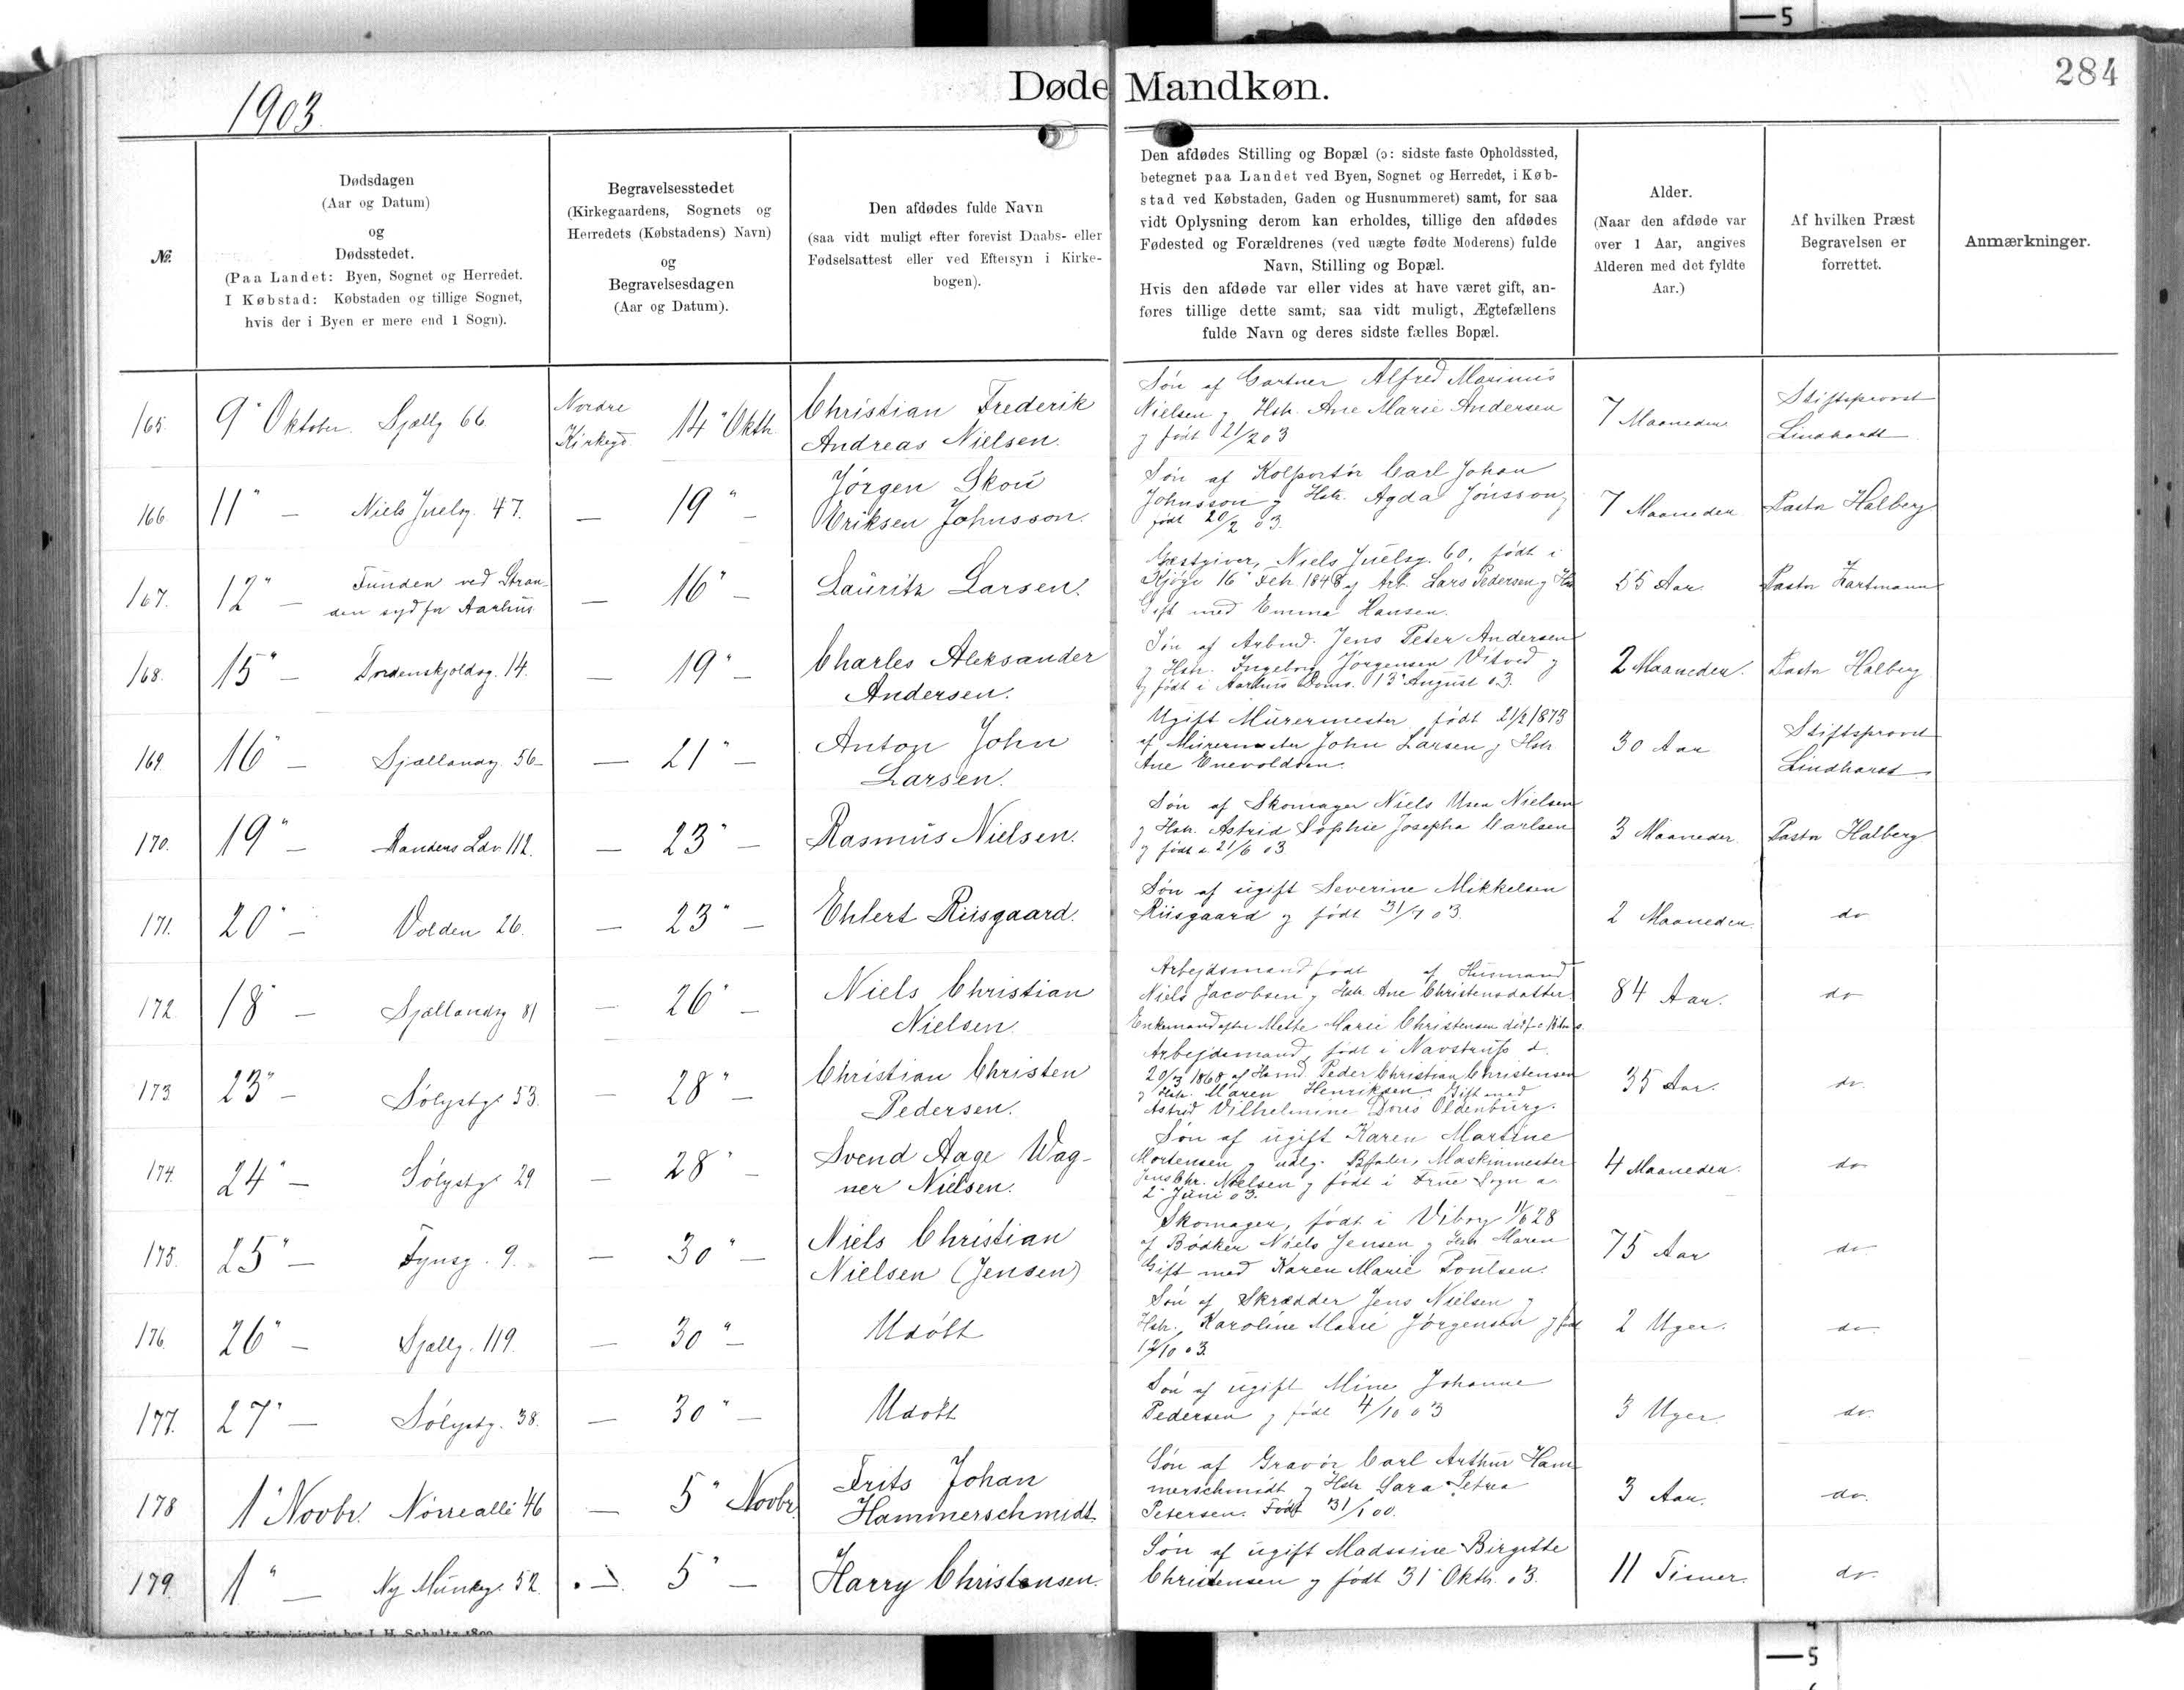 5
284
1903.
Døde Mandkøn.
No.
Dødsdagen
(Aar og Datum)
og
Dødsstedet.
(Paa Landet: Byen, Sognet og Herredet.
I Købstad: Købstaden og tillige Sognet,
hvis der i Byen er mere end 1 Sogn).
Begravelsesstedet
(Kirkegaardens, Sognets og
Herredets (Købstadens) Navn)
og
Begravelsesdagen
(Aar og Datum).
Den afdødes fulde Navn
(saa vidt muligt efter forevist Daabs- eller
Fødselsattest eller ved Eftersyn i Kirke-
bogen).
Den afdødes Stilling og Bopæl (ɔ: sidste faste Opholdssted,
betegnet paa Landet ved Byen, Sognet og Herredet, i Køb-
stad ved Købstaden, Gaden og Husnummeret) samt, for saa
vidt Oplysning derom kan erholdes, tillige den afdødes
Fødested og Forældrenes (ved uægte fødte Moderens) fulde
Navn, Stilling og Bopæl.
Hvis den afdøde var eller vides at have været gift, an-
føres tillige dette samt, saa vidt muligt, Ægtefællens
fulde Navn og deres sidste fælles Bopæl.
Alder.
(Naar den afdøde var
over 1 Aar, angives
Alderen med det fyldte
Aar.)
Af hvilken Præst
Begravelsen er
forrettet.
Anmærkninger.
165. 9" Oktober. Sjællg 66.
Nordre
Kirkegd. 14" Oktb.
Christian Frederik
Andreas Nielsen.
Søn af Gartner Alfred Marinus
Nielsen og Hstr. Ane Marie Andersen
og født 21/2 03
7 Maaneder
Stiftsprovst
Lindhardt
166 11" — Niels Juelsg. 47.
— 19" —
Jörgen Skou
Eriksen Johnsson.
Søn af Kolportör Carl Johan
Johnsson og Hstr. Agda Jönsson,
født 20/2 03.
7 Maaneder
Pastor Halberg
167. 12" — Funden ved Stran-
den syd for Aarhus
— 16" —
Lauritz Larsen.
Gæstgiver, Niels Juelsg. 60, født i
Kjöge 16" Feb. 1848 af Arb. Lars Pedersen og Hstr.
Gift med Emma Hansen.
55 Aar
Pastor Hartmann
168. 15" — Tordenskjoldsg. 14.
— 19" —
Charles Aleksander
Andersen.
Søn af Arbmd. Jens Peter Andersen
og Hstr. Ingeborg Jörgensen Vitved og
født i Aarhus Doms. 13" August 03.
2 Maaneder.
Pastor Halberg
169. 16" — Sjællandsg. 56
— 21" —
Anton John
Larsen.
Ugift Murermester, født 21/2 1873
af Murermester John Larsen og Hstr
Ane Enevoldsen.
30 Aar
Stiftsprovst
Lindhardt
170. 19" — Randers Ldv. 112.
— 23" —
Rasmus Nielsen.
Søn af Skomager Niels Nielsen
og Hstr. Astrid Sophie Josepha Carlsen
og født d. 21/6 03
3 Maaneder
Pastor Halberg
171. 20" — Volden 26.
— 23" —
Ehlert Riisgaard.
Søn af ugift Severine Mikkelsen
Riisgaard og født 31/7 03.
2 Maaneder.
do
172. 18" — Sjællandsg 81
— 26" —
Niels Christian
Nielsen
Arbejdsmand født af Husmand
Niels Jacobsen og Hstr. Ane Christensdatter
Enkemand efter Mette Marie Christensen
84 Aar.
do
173. 23" — Sölystg. 53.
— 28" —
Christian Christen
Pedersen.
Arbejdsmand, født i Navstrup d.
20/3 1868 af Hsmd. Peder Christian Christensen
og Hstr. Maren Henriksen. Gift med
Astrid Vilhelmine Doris Oldenburg.
35 Aar.
do.
174. 24" — Sölystg. 29
— 28" —
Svend Aage Wag-
ner Nielsen.
Søn af ugift Karen Martine
Mortensen og udlg. Bfader, Maskinmester
Jens Chr. Nielsen og født i Frue Sogn d.
2" Juni 03.
4 Maaneder.
do
175. 25" — Fynsg. 9.
— 30" —
Niels Christian
Nielsen (Jensen)
Skomager, født i Viborg 1/6 28
af Bödker Niels Jensen og Hstr Maren
Gift med Karen Marie Poulsen.
75 Aar
do
176. 26" — Sjællg. 119.
— 30" —
Udöbt
Søn af Skrædder Jens Nielsen og
Hstr. Karoline Marie Jörgensen og født
12/10 03.
2 Uger.
do.
177. 27" — Sölystg. 38.
— 30" —
Udöbt
Søn af ugift Mine Johanne
Pedersen og født 4/10 03
3 Uger.
do.
178 1" Novbr. Nørreallé 46
— 5" Novbr.
Frits Johan
Hammerschmidt.
Søn af Gravör Carl Arthur Ham-
merschmidt og Hstr Sara Petrea
Petersen. Født 31/1 00.
3 Aar.
do.
179. 1" — Ny Munkeg. 52.
— 5" —
Harry Christensen.
Søn af ugift Madssine Birgitte
Christensen og født 31" Oktb. 03.
11 Timer.
do.
5